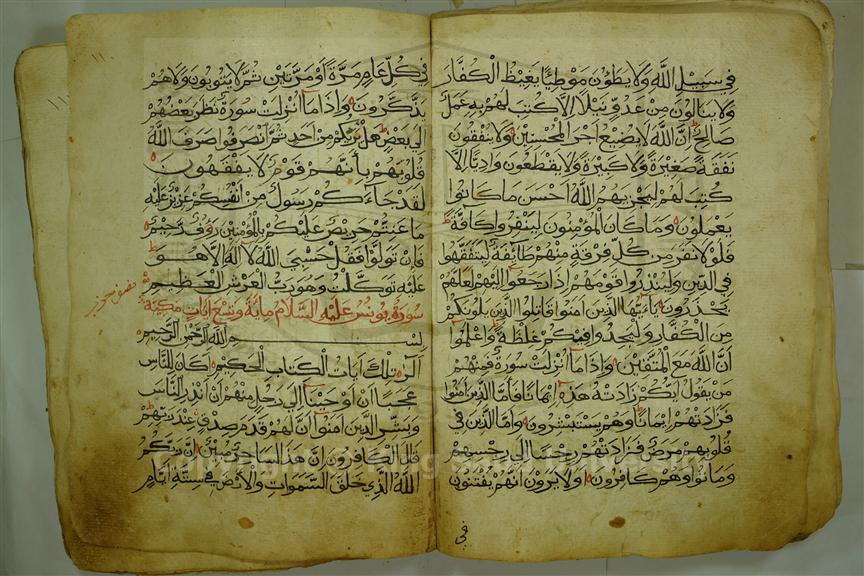 في سبيل الله ولا يطؤن موطيا يغيظ الكفار
ولا ينالون من عدو نيلا الا كتب لهم به عمل
صالح ان الله لا يضيع اجر المحسنين ولا ينفقون
نفقة صغيرة ولا كبيرة ولا يقطعون واديا الا
كتب لهم ليجزيهم الله احسن ما كانوا
يعملون وما كان المؤمنون لينفروا كافة
فلولا نفر من كل فرقة منهم طائفة ليتفقهوا
في الدين ولينذروا قومهم اذا رجعوا اليهم لعلهم
يحذرون يا ايها الذين امنوا قاتلوا الذين يلونكم
من الكفار وليجدوا فيكم غلظة واعلموا
ان الله مع المتقين واذا ما انزلت سورة فمنهم
من يقول ايكم زادته هذه ايمانا فاما الذين امنوا
فزادتهم ايمانا وهم يستبشرون واما الذين في
قلوبهم مرض فزادتهم رجسا الى رجسهم
وماتوا وهم كافرون اولا يرون انهم يفتنون
في
في كل عام مرة او مرتين ثم لا يتوبون ولا هم
يذكرون واذا ما انزلت سورة نظر بعضهم
الى بعض هل يريكم من احد ثم انصرفوا صرف الله
قلوبهم بانهم قوم لا يفقهون
لقد جاءكم رسول من انفسكم عزيز عليه
ما عنتم حريص عليكم بالمؤمنين رؤف رحيم
فان تولوا فقل حسبي الله لا اله الا هو
عليه توكلت وهو رب العرش العظيم
نصف حزب
سورة يونس عليه السلام ماية وتسع ايات مكية
بسم الله الرحمن الرحيم
الر تلك ايات الكتاب الحكيم اكان للناس
عجبا ان اوحينا الى رجل منهم ان انذر الناس
وبشر الذين امنوا ان لهم قدم صدق عند ربهم
قال الكافرون ان هذا لساحر مبين ان ربكم
الله الذي خلق السموات والارض في ستة ايام